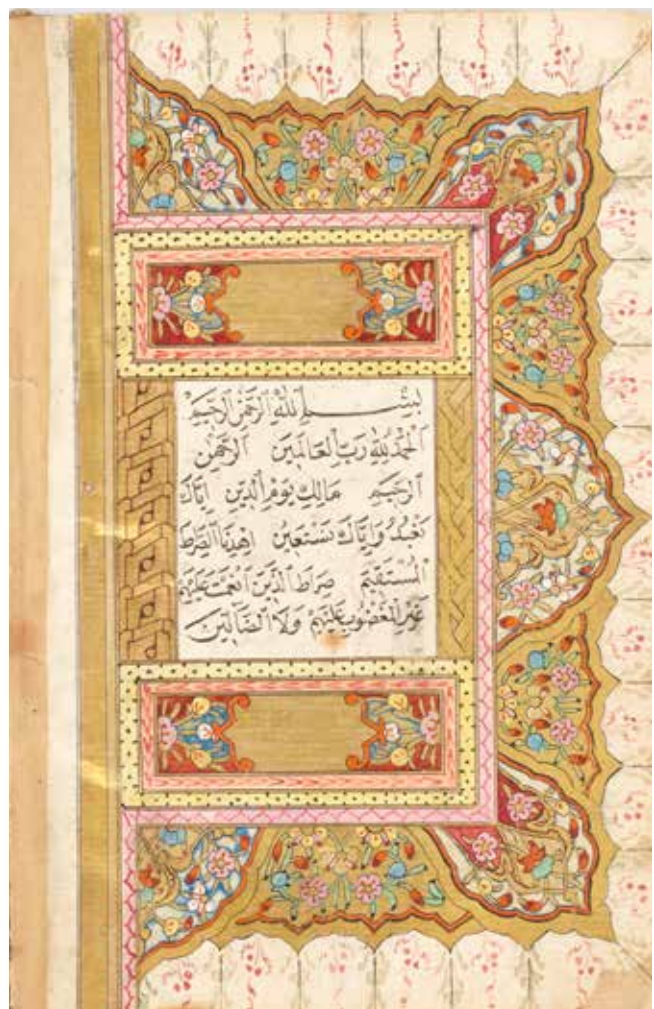 بِسْمِ اللّٰهِ الرَّحْمٰنِ الرَّحِيمِ
اَلْحَمْدُ لِلّٰهِ رَبِّ الْعَالَمِينَ الرَّحْمٰنِ
الرَّحِيمِ مَالِكِ يَوْمِ الدِّينِ اِيَّاكَ
نَعْبُدُ وَاِيَّاكَ نَسْتَعِينُ اِهْدِنَا الصِّرَاطَ
الْمُسْتَقِيمَ صِرَاطَ الَّذِينَ اَنْعَمْتَ عَلَيْهِمْ
غَيْرِ الْمَغْضُوبِ عَلَيْهِمْ وَلَا الضَّالِّينَ